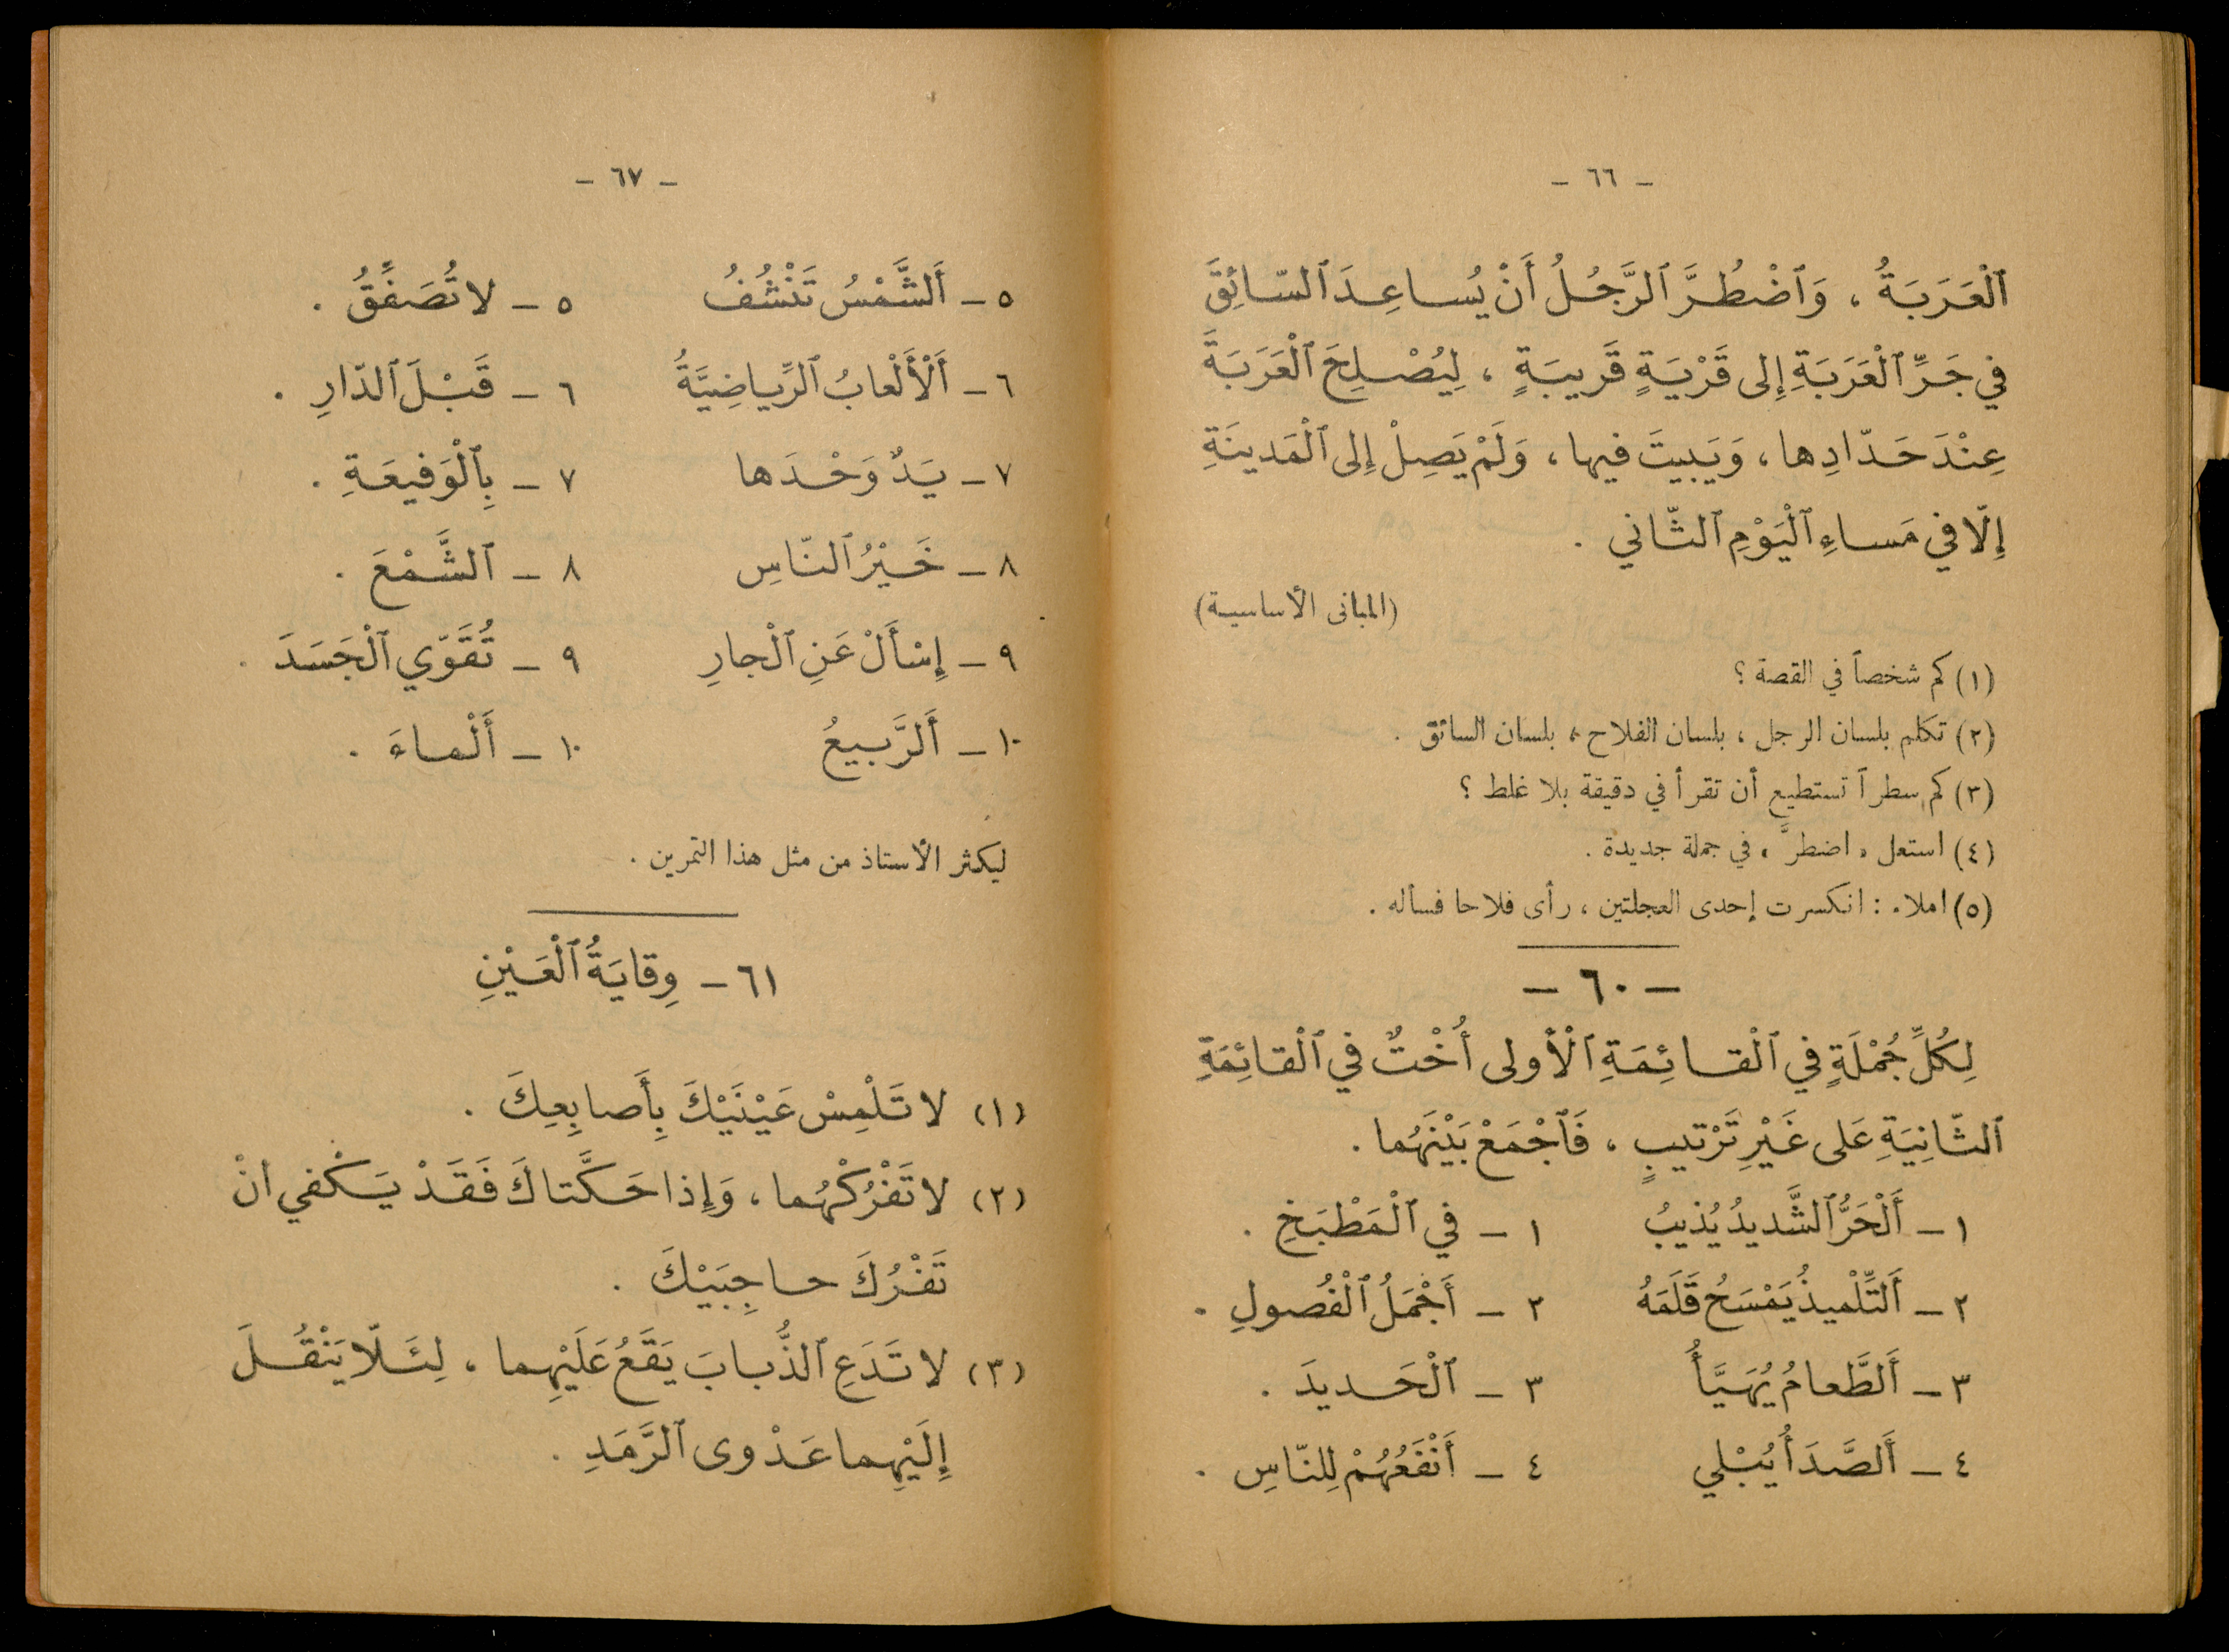 - ٦٦ -
ٱلْعَرَبَةُ ، وَٱضْطُرَّ ٱلرَّجُلُ أَنْ يُساعِدَ ٱلسّائِقَ
في جَرِّ ٱلْعَرَبَةِ إِلى قَرْيَةٍ قَريبَةٍ ، لِيُصْلِحَ ٱلْعَرَبَةَ
عِنْدَ حَدّادِها ، وَيَبيتَ فيها ، وَلَمْ يَصِلْ إِلى ٱلْمَدينَةِ
إِلّا في مَساءِ ٱلْيَوْمِ ٱلثّاني .
(المبانى الأساسية)
(١) كم شخصاً في القصة ؟
(٢) تكلم بلسان الرجل ، بلسان الفلاح ، بلسان السائق .
(٣) كم سطراً تستطيع أن تقرأ في دقيقة بلا غلط ؟
(٤) استعمل « اضطرَّ » في جملة جديدة .
(٥) املاء : انكسرت إحدى العجلتين ، رأى فلاحا فسأله .
- ٦٠ -
لِكُلِّ جُمْلَةٍ في ٱلْقائِمَةِ ٱلْأولى أُخْتٌ في ٱلْقائِمَةِ
ٱلثّانِيَةِ عَلى غَيْرِ تَرْتيبٍ ، فَٱجْمَعْ بَيْنَهُما .
١ - أَلْحَرُّ ٱلشَّديدُ يُذيبُ ١ - في ٱلْمَطْبَخِ .
٢ - أَلتِّلْميذُ يَمْسَحُ قَلَمَهُ ٢ - أَجْمَلُ ٱلْفُصولِ .
٣ - أَلطَّعامُ يُهَيَّأُ ٣ - ٱلْحَديدَ .
٤ - أَلصَّدَأُ يُبْلي ٤ - أَنْفَعُهُمْ لِلنّاسِ .
- ٦٧ -
٥ - أَلشَّمْسُ تَنْشُفُ ٥ - لا تُصَفِّقُ .
٦ - أَلْأَلْعابُ ٱلرِّياضِيَّةُ ٦ - قَبْلَ ٱلدّارِ .
٧ - يَدٌ وَحْدَها ٧ - بِٱلْوَفيعَةِ .
٨ - خَيْرُ ٱلنّاسِ ٨ - ٱلشَّمْعَ .
٩ - إِسْأَلْ عَنِ ٱلْجارِ ٩ - تُقَوّي ٱلْجَسَدَ .
١٠ - أَلرَّبيعُ ١٠ - أَلْماءَ .
ليكثر الأستاذ من مثل هذا التمرين .
٦١ - وِقايَةُ ٱلْعَيْنِ
(١) لا تَلْمِسْ عَيْنَيْكَ بِأَصابِعِكَ .
(٢) لا تَفْرُكْهُما ، وَإِذا حَكَّتاكَ فَقَدْ يَكْفي انْ
تَفْرُكَ حاجِبَيْكَ .
(٣) لا تَدَعِ ٱلذُّبابَ يَقَعُ عَلَيْهِما ، لِئَلّا يَنْقُلَ
إِلَيْهِما عَدْوى ٱلرَّمَدِ .